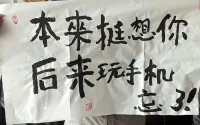 本来挺想你
后来玩手机
忘了!